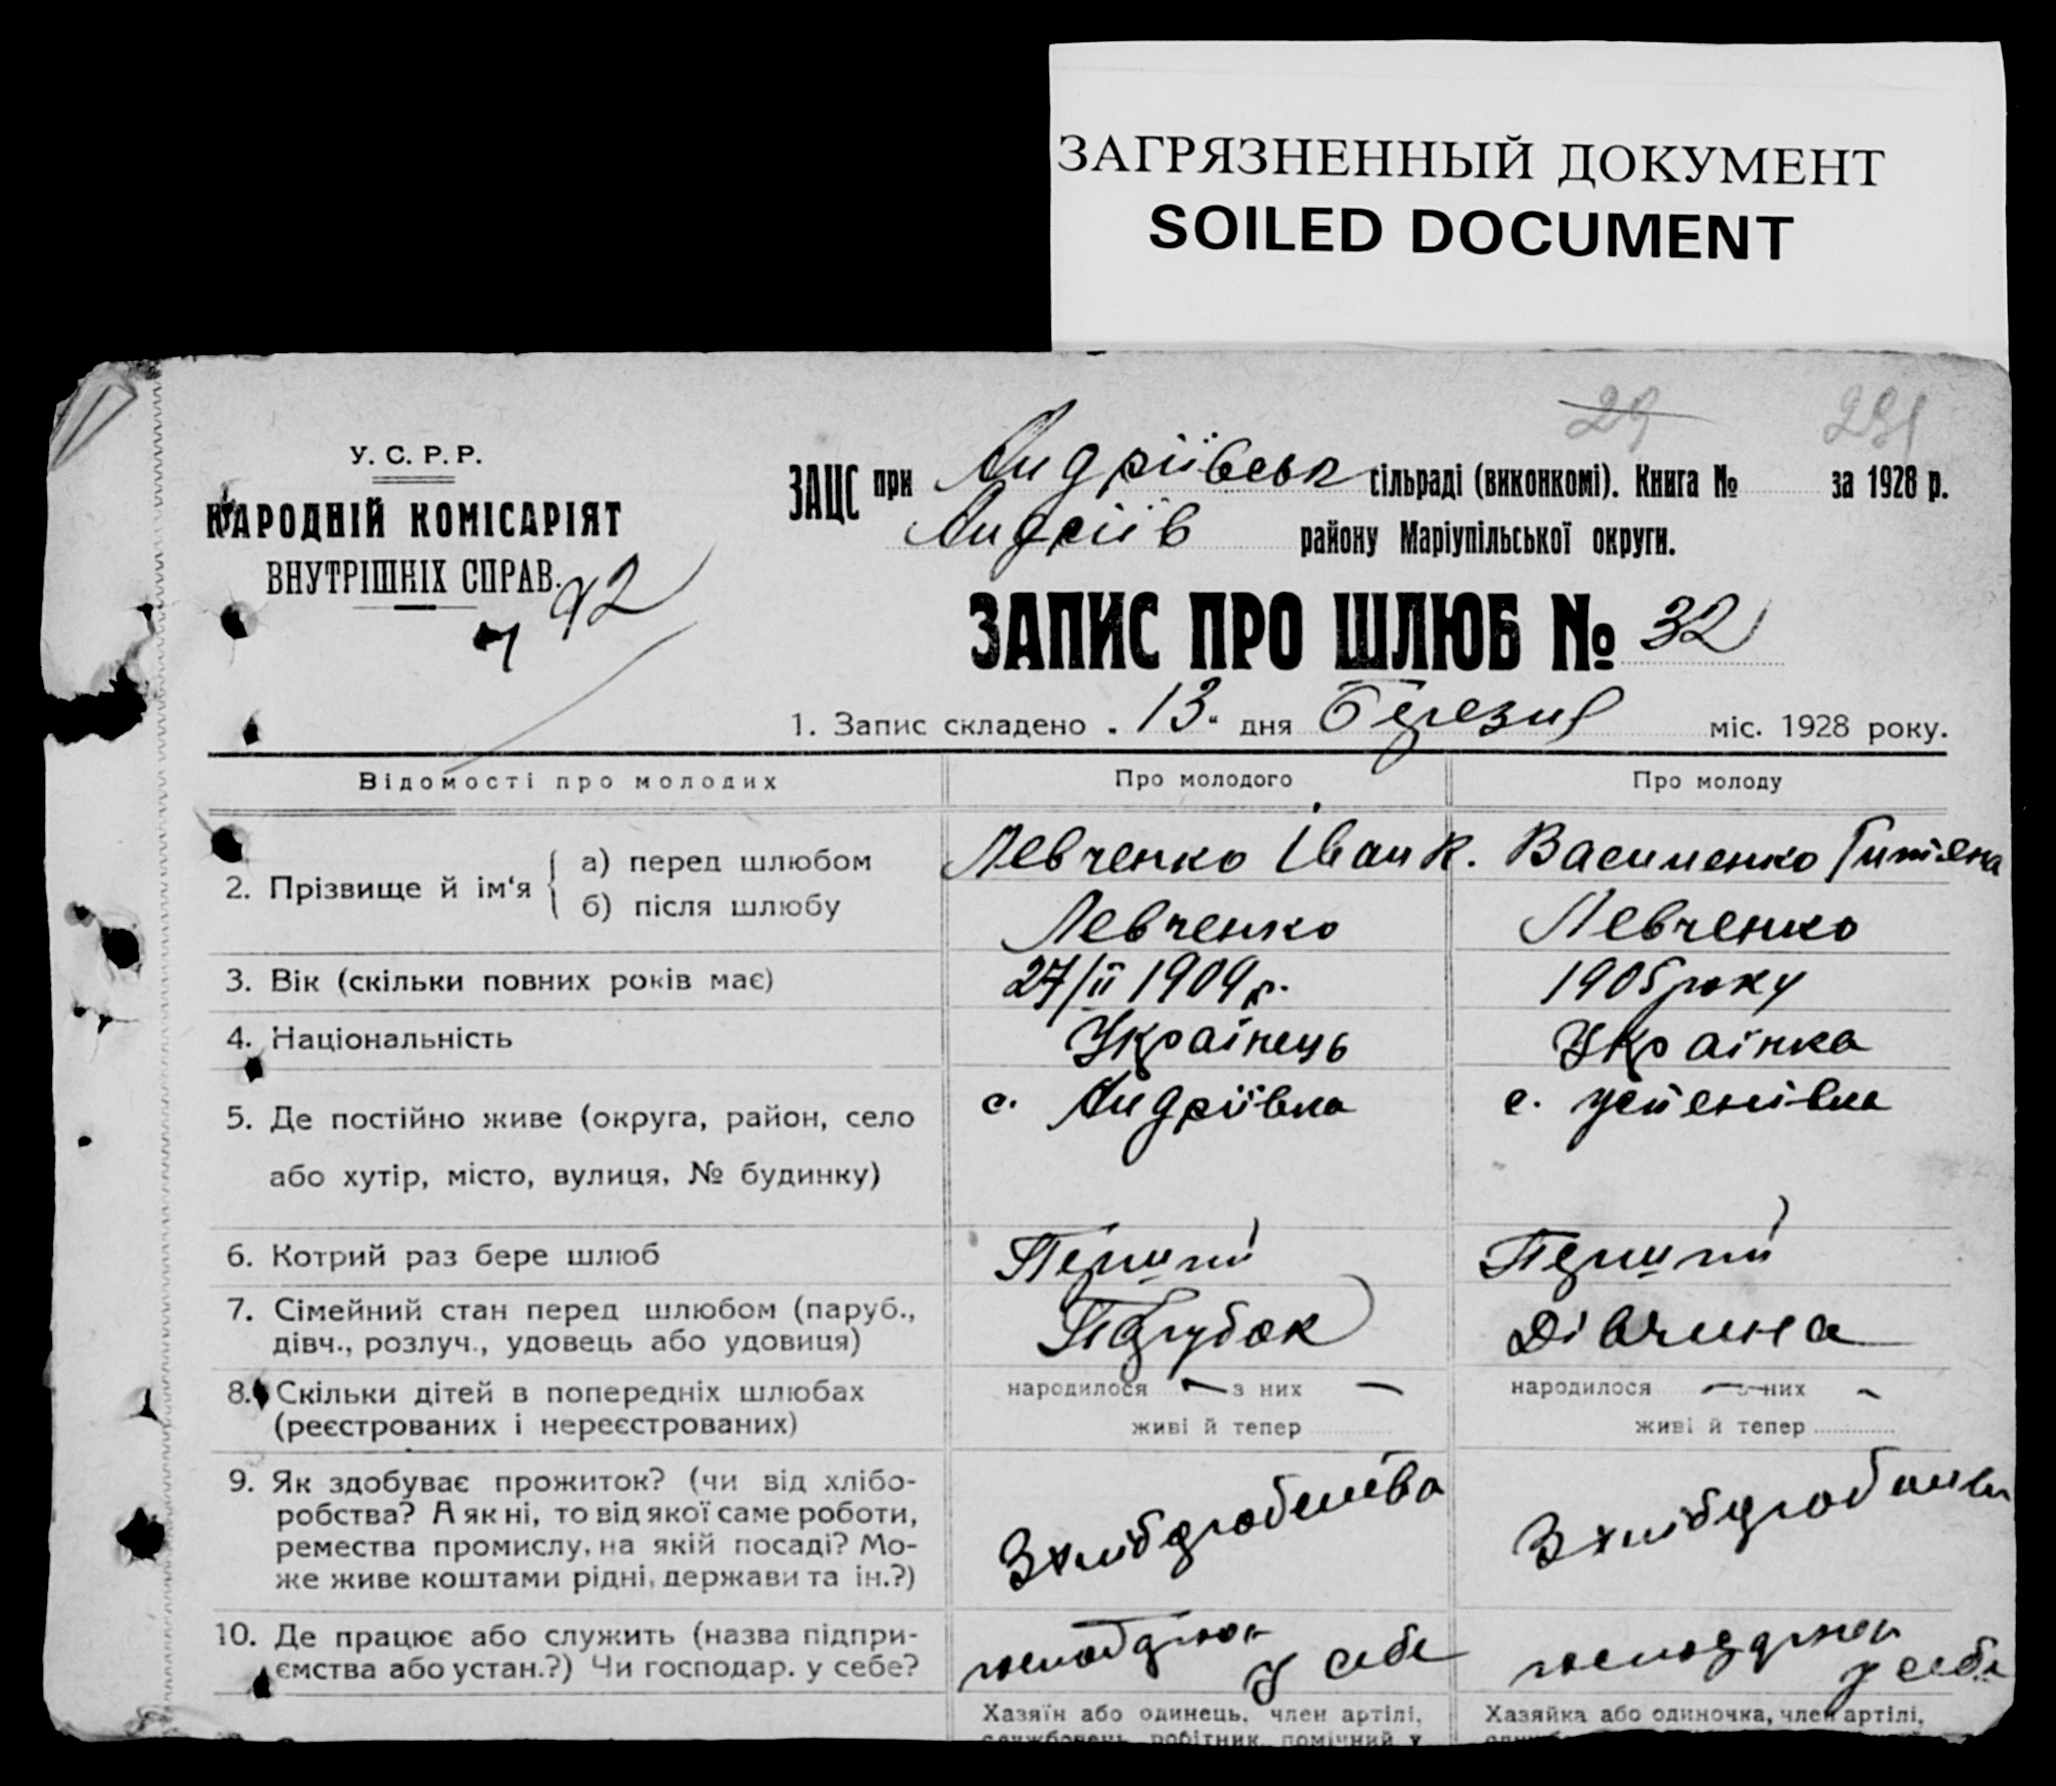 ЗАГРЯЗНЕННЫЙ ДОКУМЕНТ
SOILED DOCUMENT
29
У. С. Р. Р.
НАРОДНІЙ КОМІСАРІЯТ
ВНУТРІШНІХ СПРАВ.
ЗАЦС при Андріївськ сільраді (виконкомі). Книга № за 1928 р.
Андріїв району Маріупільської округи.
ЗАПИС ПРО ШЛЮБ № 32
1. Запис складено 13 дня Березня міс. 1928 року.
Відомості про молодих Про молодого Про молоду
2. Прізвище й ім'я
а) перед шлюбом Левченко Іван К. Василенко
б) після шлюбу Левченко Левченко
3. Вік (скільки повних років має) 27/ІІ 1909 р. 1905 року
4. Національність Українець Українка
5. Де постійно живе (округа, район, село с. Андріївка с.
або хутір, місто, вулиця, № будинку)
6. Котрий раз бере шлюб Перший Перший
7. Сімейний стан перед шлюбом (паруб., Парубок Дівчина
дівч., розлуч., удовець або удовиця)
8. Скільки дітей в попередніх шлюбах народилося — з них — народилося — з них —
(реєстрованих і нереєстрованих) живі й тепер живі й тепер
9. Як здобуває прожиток? (чи від хлібо-
робства? А як ні, то від якої саме роботи,
ремества промислу, на якій посаді? Мо-
же живе коштами рідні, держави та ін.?)
З хліборобства
10. Де працює або служить (назва підпри-
ємства або устан.?) Чи господар. у себе?
у себе у себе
Хазяїн або одинець, член артілі, Хазяйка або одиночка, член артілі,
службовець, робітник, помічний у